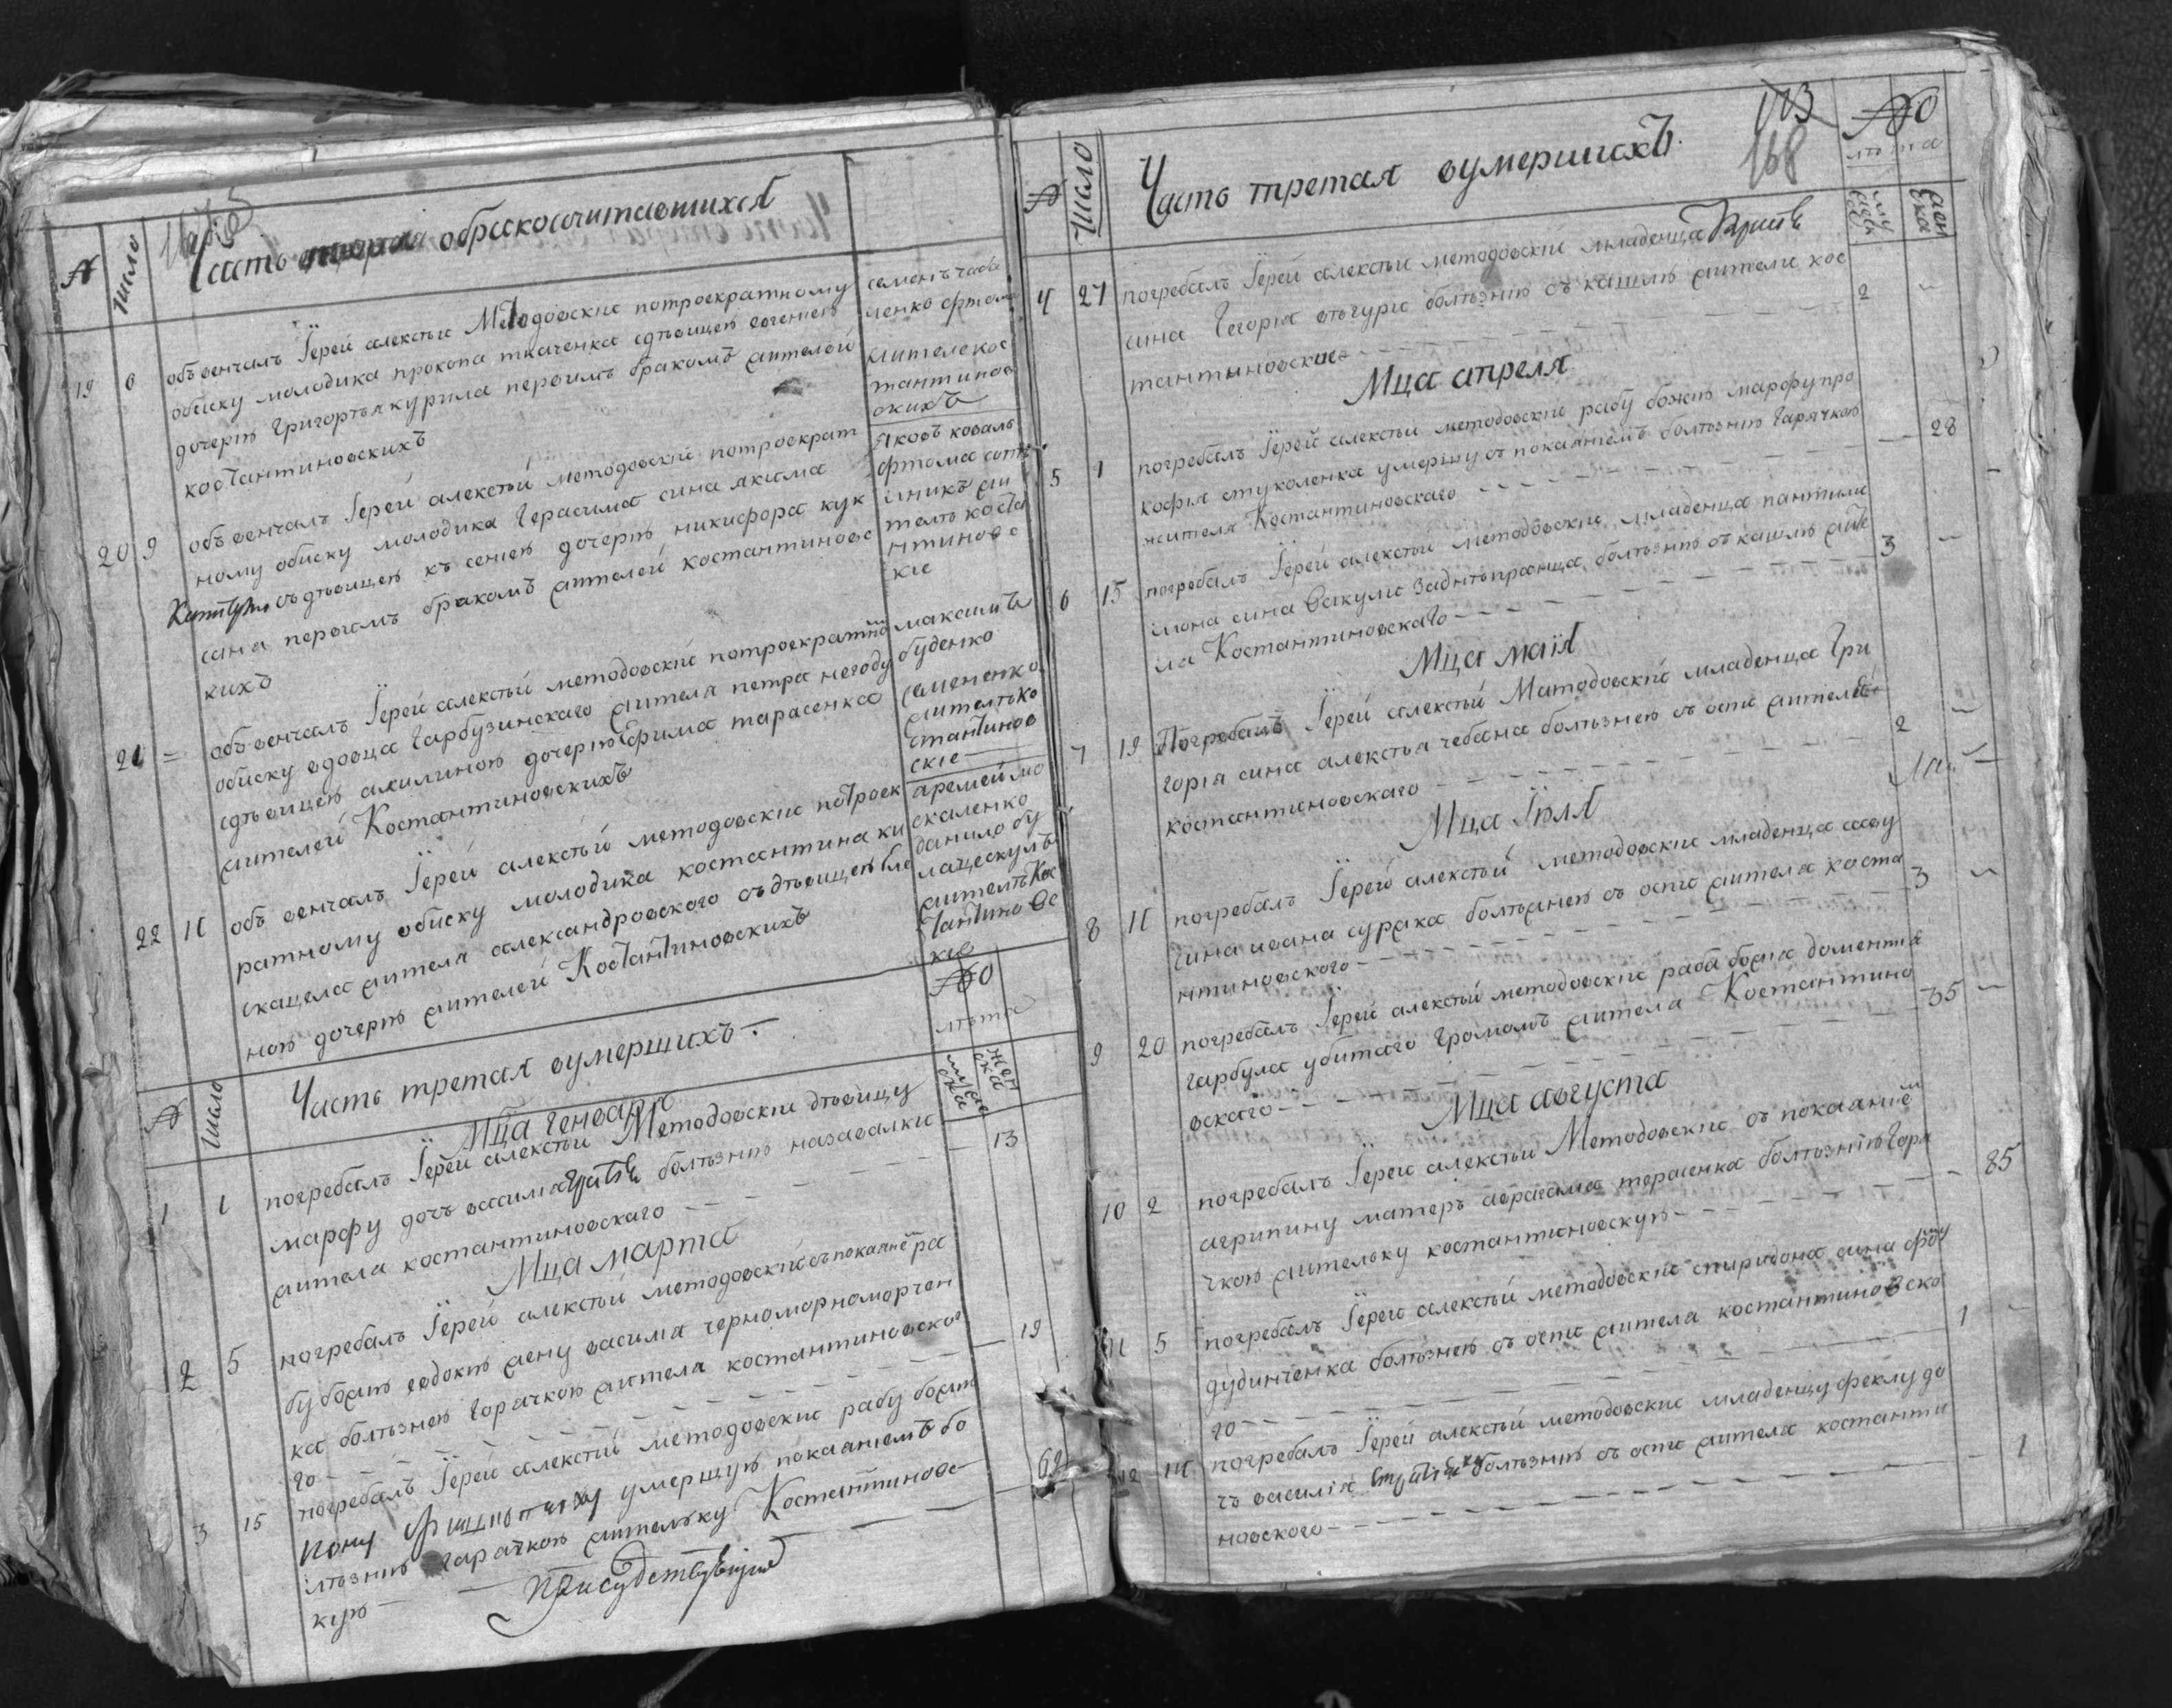 №
число
Часть вторая обракосочитавшихся
19 6 объвенчалъ Їерей алексѣи Методовские потроекратному
обиску молодика прокопа ткаченка сдѣвицею евгениею
дочерю Григорѣя курила первимъ бракомъ жителей
костантиновскихъ
семенъ
ченко
жителе кос
тантинов
скихъ
20 9 объвенчалъ Їерей алексѣй методовские потроекрат
ному обиску молодика Герасима сина якима
съдѣвицею къ сениею дочерю никифора кук
сана первимъ бракомъ жителей костантиновс
кихъ
Яковъ коваль
артома
жи
тель коста
нтиновс
кие
21 = объвенчалъ Їерей алексѣй методовские потроекратно
обиску вдовца Гарбузинскаго жителя петра негоду
сдѣвицею акилиною дочерю ефима тарасенка
жителей Костантиновскихъ
максимъ
буденко
семененко
жительѣ ко
стантинов
ские
22 11 объ венчалъ Їерей алексѣй методовские потроек
ратному обиску молодика костантина ки
скацела жителя александровского съдѣвицею еле
ною дочерю жителей Костантиновскихъ
яремей мо
скаленко
данило бу
лацескулъ
жительѣ Кос
тантиновс
кие
№
число
Часть третая оумершихъ
лѣта
мужеска
женска
Мца генваря
1 1 погребалъ Їерей алексѣи Методовские дѣвицу
марфу дочъ василия болѣзнию назавалки
жителя костантиновскаго — 13
Мца марта
2 5 погребалъ Їерей алексѣй методовские съ покаяние ра
бу божию евдокию жену василия черноморноморчен
ка болѣзнею горячкою жителя костантиновско
го — 19
3 15 погребалъ Їерей алексѣй методовские рабу божию
умершую покаяниемъ бо
лѣзнию гарячкою жительку Костантиновс
кую — 62
Присудствующий
№
число
Часть третая оумершихъ
168
лѣта
мужеска
женска
4 27 погребалъ Їерей алексѣи методовские младенца
сина Егория болѣзнию съ кашлю жители кос
тантиновские 2 —
Мца апреля
5 1 погребалъ Їерей алексѣи методовские рабу божию марфу про
кофия стуколенка умершу съ покаяниемъ болѣзнию гарячкою
жителя Костантиновскаго — 28
6 15 погребалъ Їерей алексѣи методовские младенца пантили
мона сина вакули заднѣпранца болѣзнию съ кашлю жите
ля Костантиновскаго 3 —
Мца маия
7 19 Погребалъ Їерей алексѣй Матодовские младенца Гри
гория сина алексѣя чебана болѣзнею съ оспи жителя
костантиновскаго 2 —
Мца Їюля
8 11 погребалъ Їерей алексѣй методовские младенца саву
сина ивана сурака болѣзнею съ оспи жителя коста
нтиновского 3 —
9 20 погребалъ Їерей алексѣй методовские раба божия доментия
гарбуза убитаго громомъ жителя Костантино
вскаго 35 —
Мца августа
10 2 погребалъ Їерей алексѣи Методовские съ покаяние
агрипину матеръ авраама терасенка болѣзнию Горя
чкою жительку костантиновскую — 85
11 5 погребалъ Їерей алексѣй методовские спиридона сина
дудинченка болѣзнею съ оспи жителя костантиновско
го 1 —
12 погребалъ Їерей алексѣй методовские младенцу феклу до
чъ василия болѣзнию съ оспи жителя костанти
новского — 1